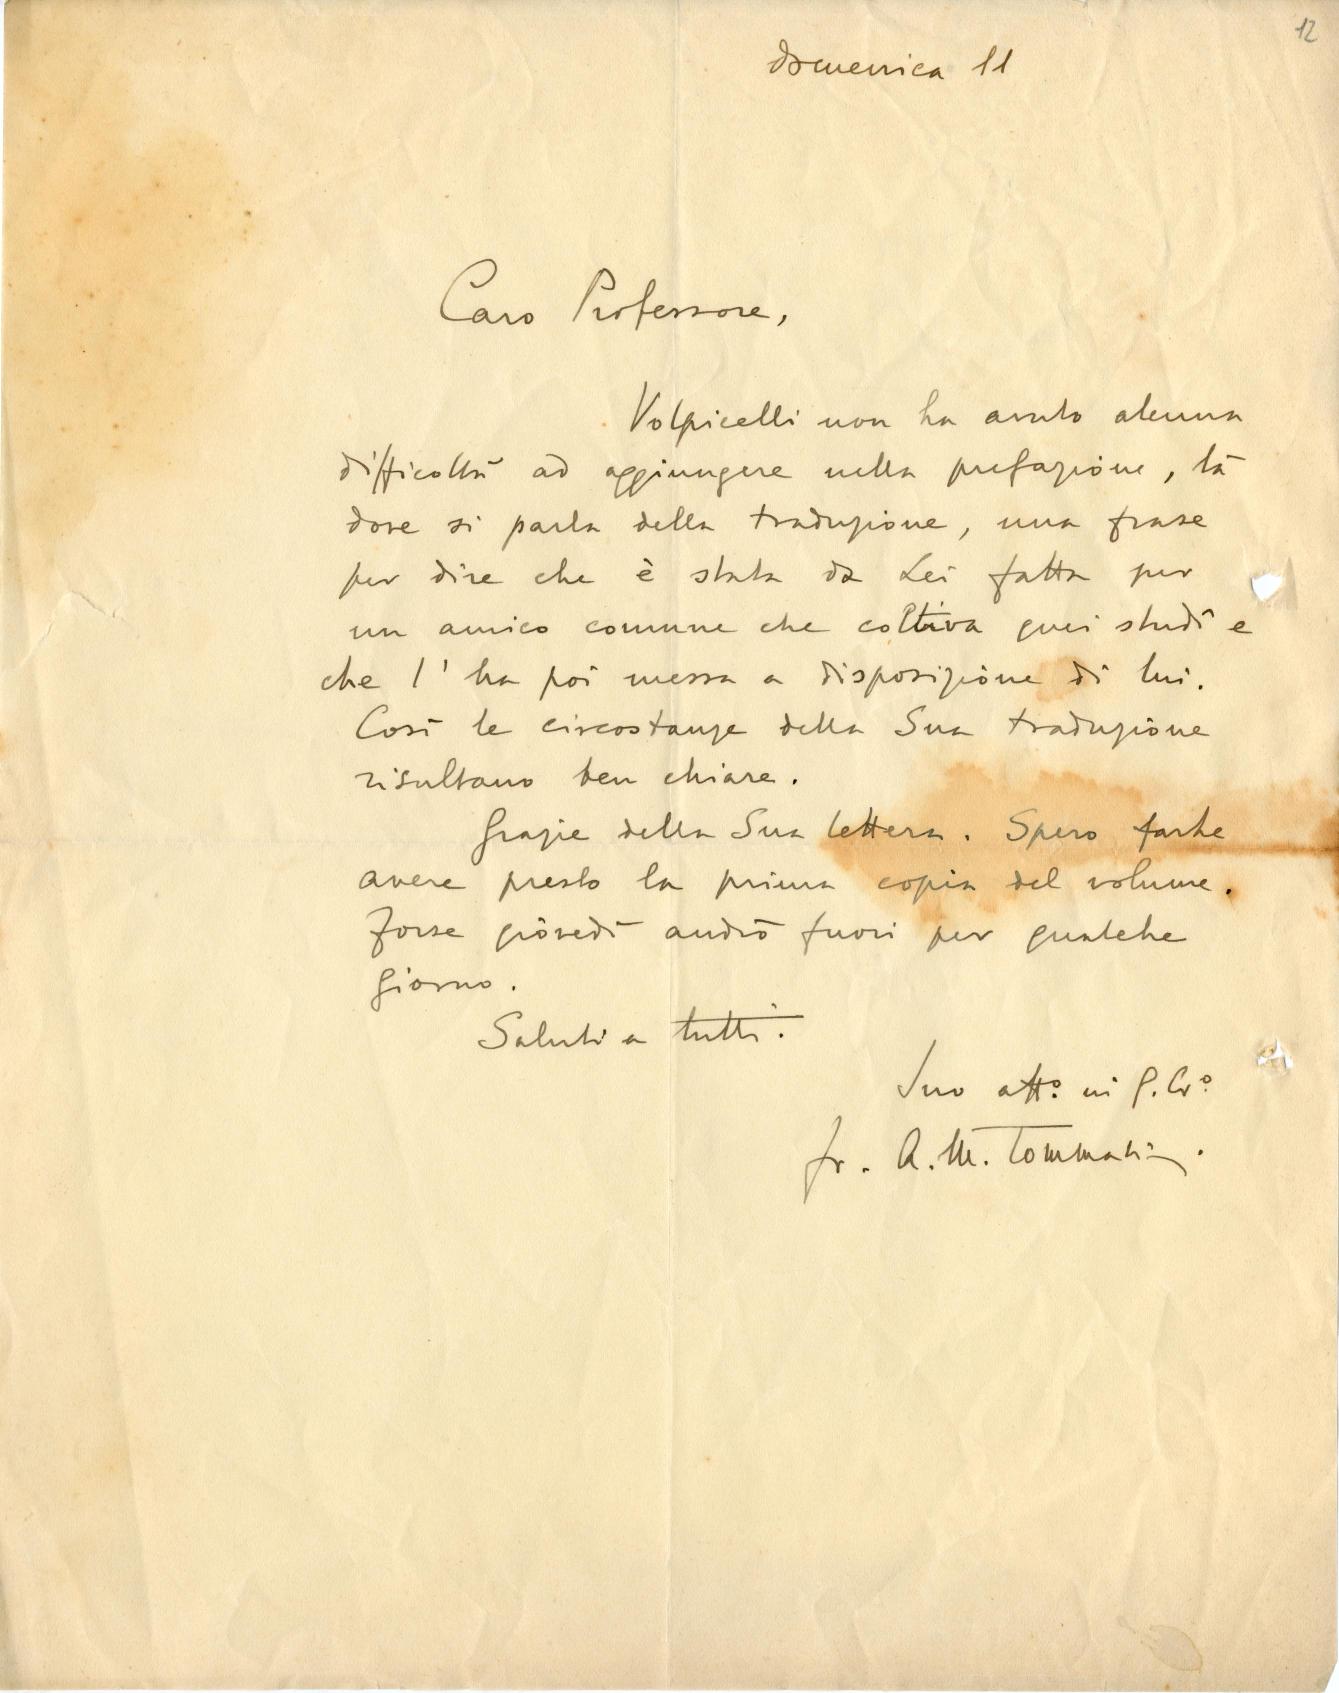 12
domenica 11
Caro Professore,
Volpicelli non ha avuto alcuna
difficoltà ad aggiungere nella prefazione, là
dove si parla della traduzione, una frase
per dire che è stata da Lei fatta per
un amico comune che coltiva quei studî e
che l'ha poi messa a disposizione di lui.
Così le circostanze della Sua traduzione
risultano ben chiare.
Grazie della Sua lettera. Spero farLe
avere presto la prima copia del volume.
Forse giovedì andrò fuori per qualche
giorno.
Saluti a tutti.
Suo aff.º in G. Crº
fr. A. M. Tommasini.